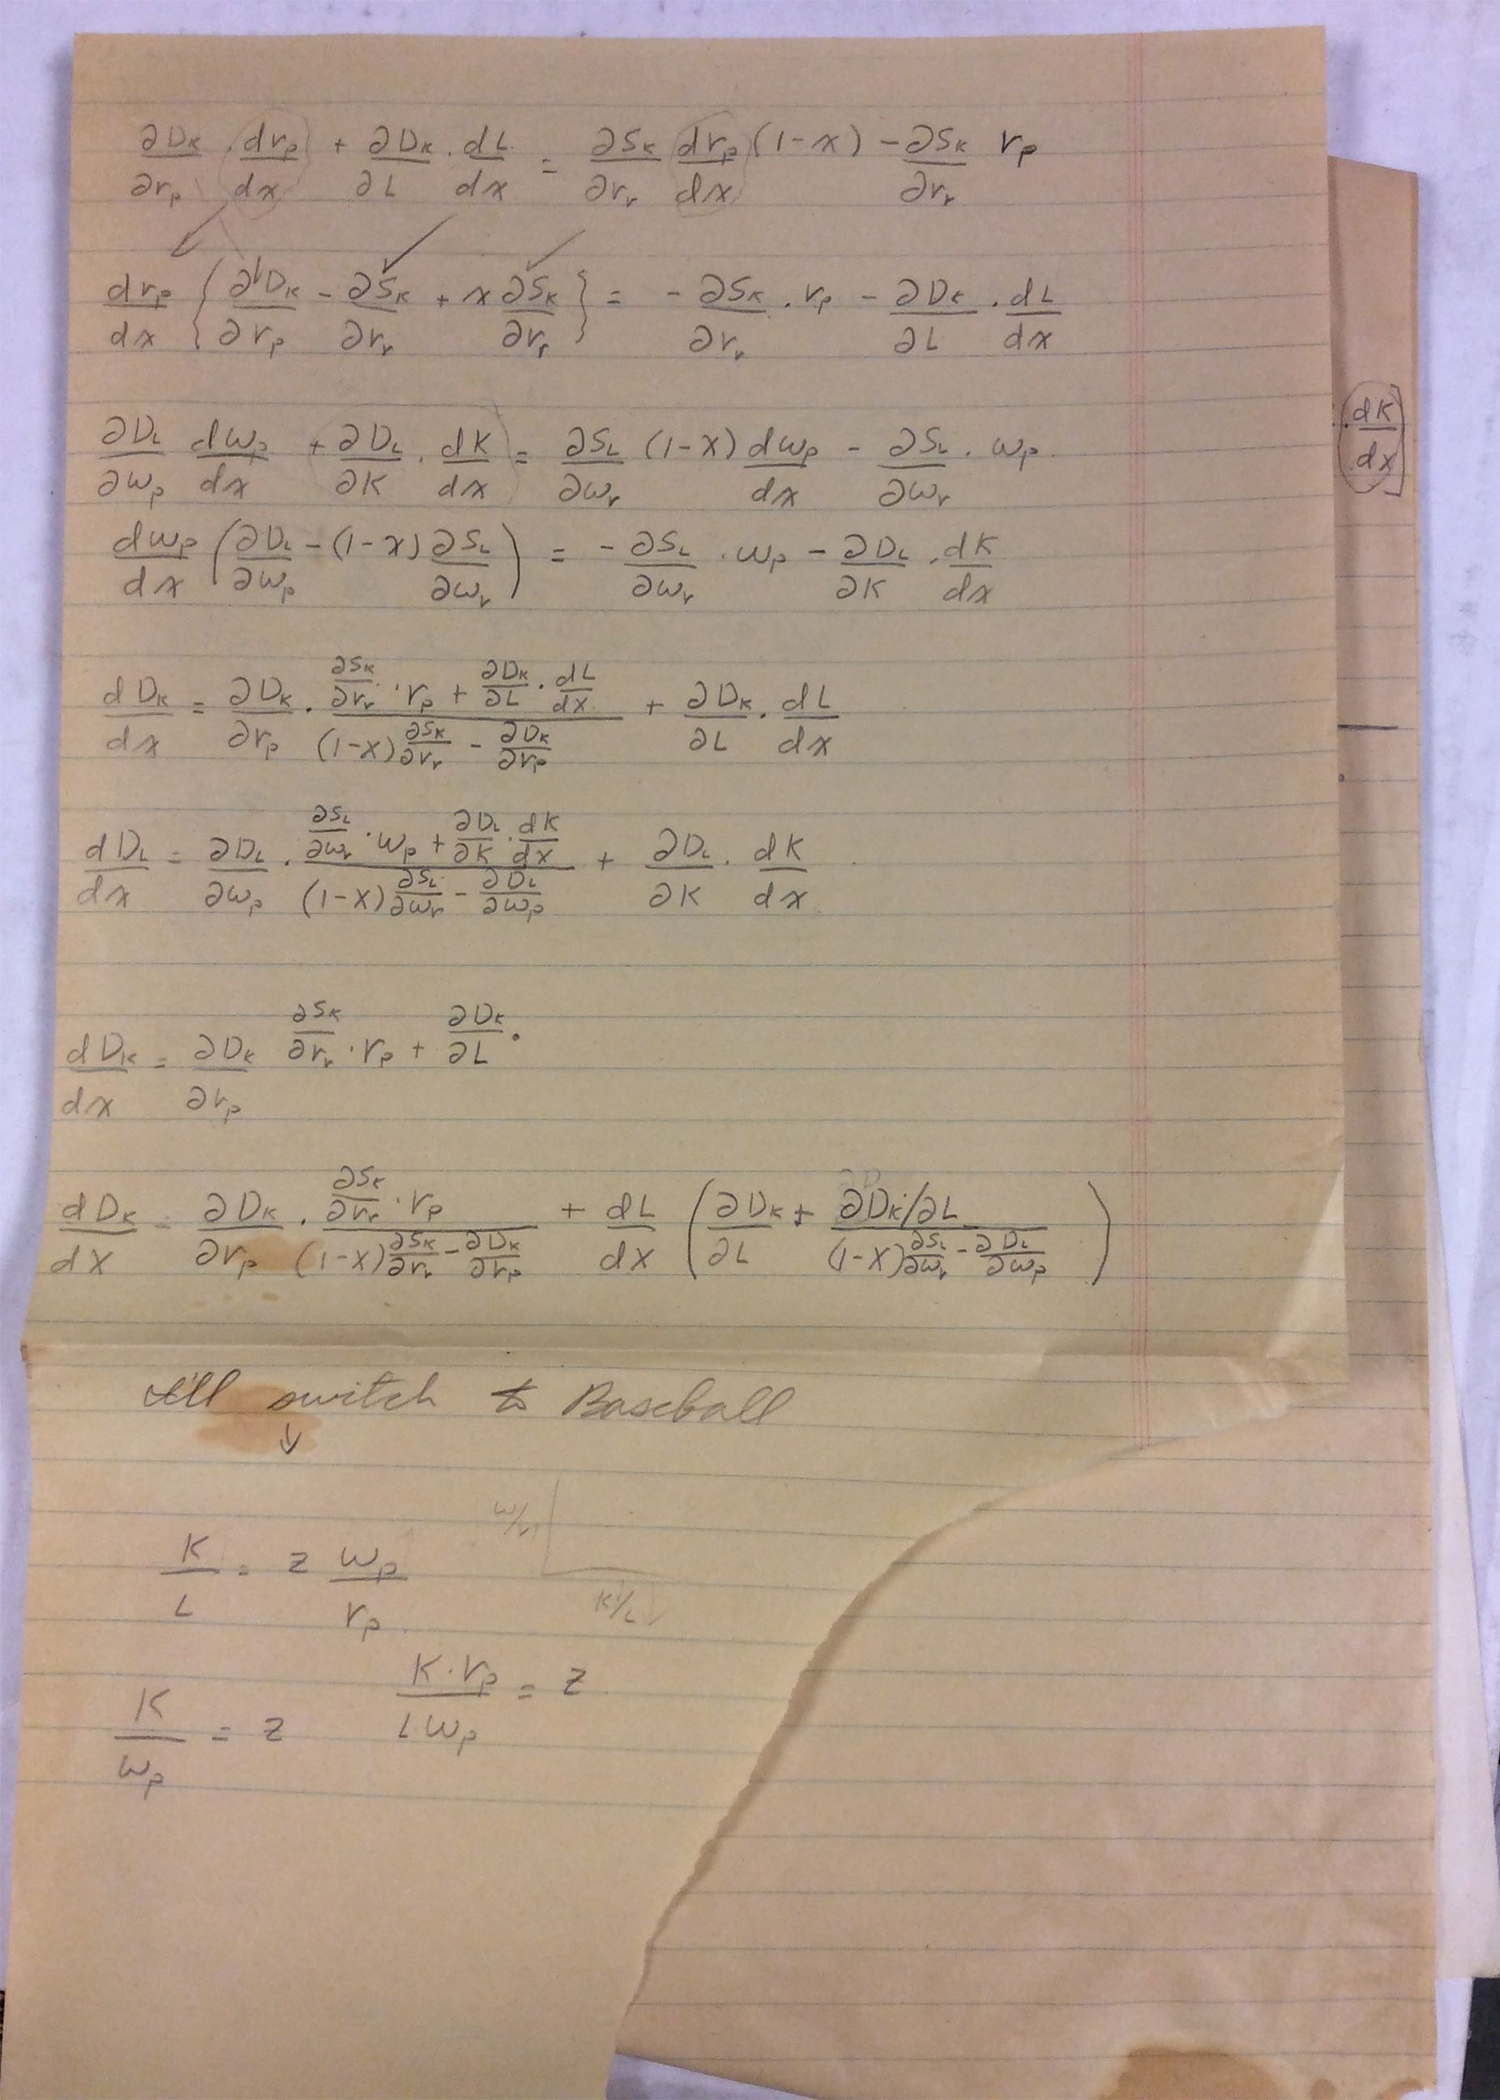 ∂D_K/∂r_p · dr_p/dx + ∂D_K/∂L · dL/dx = ∂S_K/∂r_r dr_p/dx (1-x) - ∂S_K/∂r_r r_p
dr_p/dx { ∂D_K/∂r_p - ∂S_K/∂r_r + x ∂S_K/∂r_r } = - ∂S_K/∂r_r · r_p - ∂D_K/∂L · dL/dx
∂D_L/∂w_p dw_p/dx + ∂D_L/∂K · dK/dx = ∂S_L/∂w_r (1-x) dw_p/dx - ∂S_L/∂w_r · w_p
· dK/dx ]
dw_p/dx ( ∂D_L/∂w_p - (1-x) ∂S_L/∂w_r ) = - ∂S_L/∂w_r · w_p - ∂D_L/∂K · dK/dx
dD_K/dx = ∂D_K/∂r_p · (∂S_K/∂r_r · r_p + ∂D_K/∂L · dL/dx)/((1-x) ∂S_K/∂r_r - ∂D_K/∂r_p) + ∂D_K/∂L · dL/dx
dD_L/dx = ∂D_L/∂w_p · (∂S_L/∂w_r · w_p + ∂D_L/∂K · dK/dx)/((1-x) ∂S_L/∂w_r - ∂D_L/∂w_p) + ∂D_L/∂K · dK/dx
dD_K/dx = ∂D_K/∂r_p ∂S_K/∂r_r · r_p + ∂D_K/∂L ·
dD_K/dx = ∂D_K/∂r_p · (∂S_K/∂r_r · r_p)/((1-x) ∂S_K/∂r_r - ∂D_K/∂r_p) + dL/dx ( ∂D_K/∂L + (∂D_K/∂L)/((1-x) ∂S_L/∂w_r - ∂D_L/∂w_p) )
I'll switch to Baseball
↓
K/L = z w_p/r_p
K/L
K·r_p/(L w_p) = z
K/w_p = z